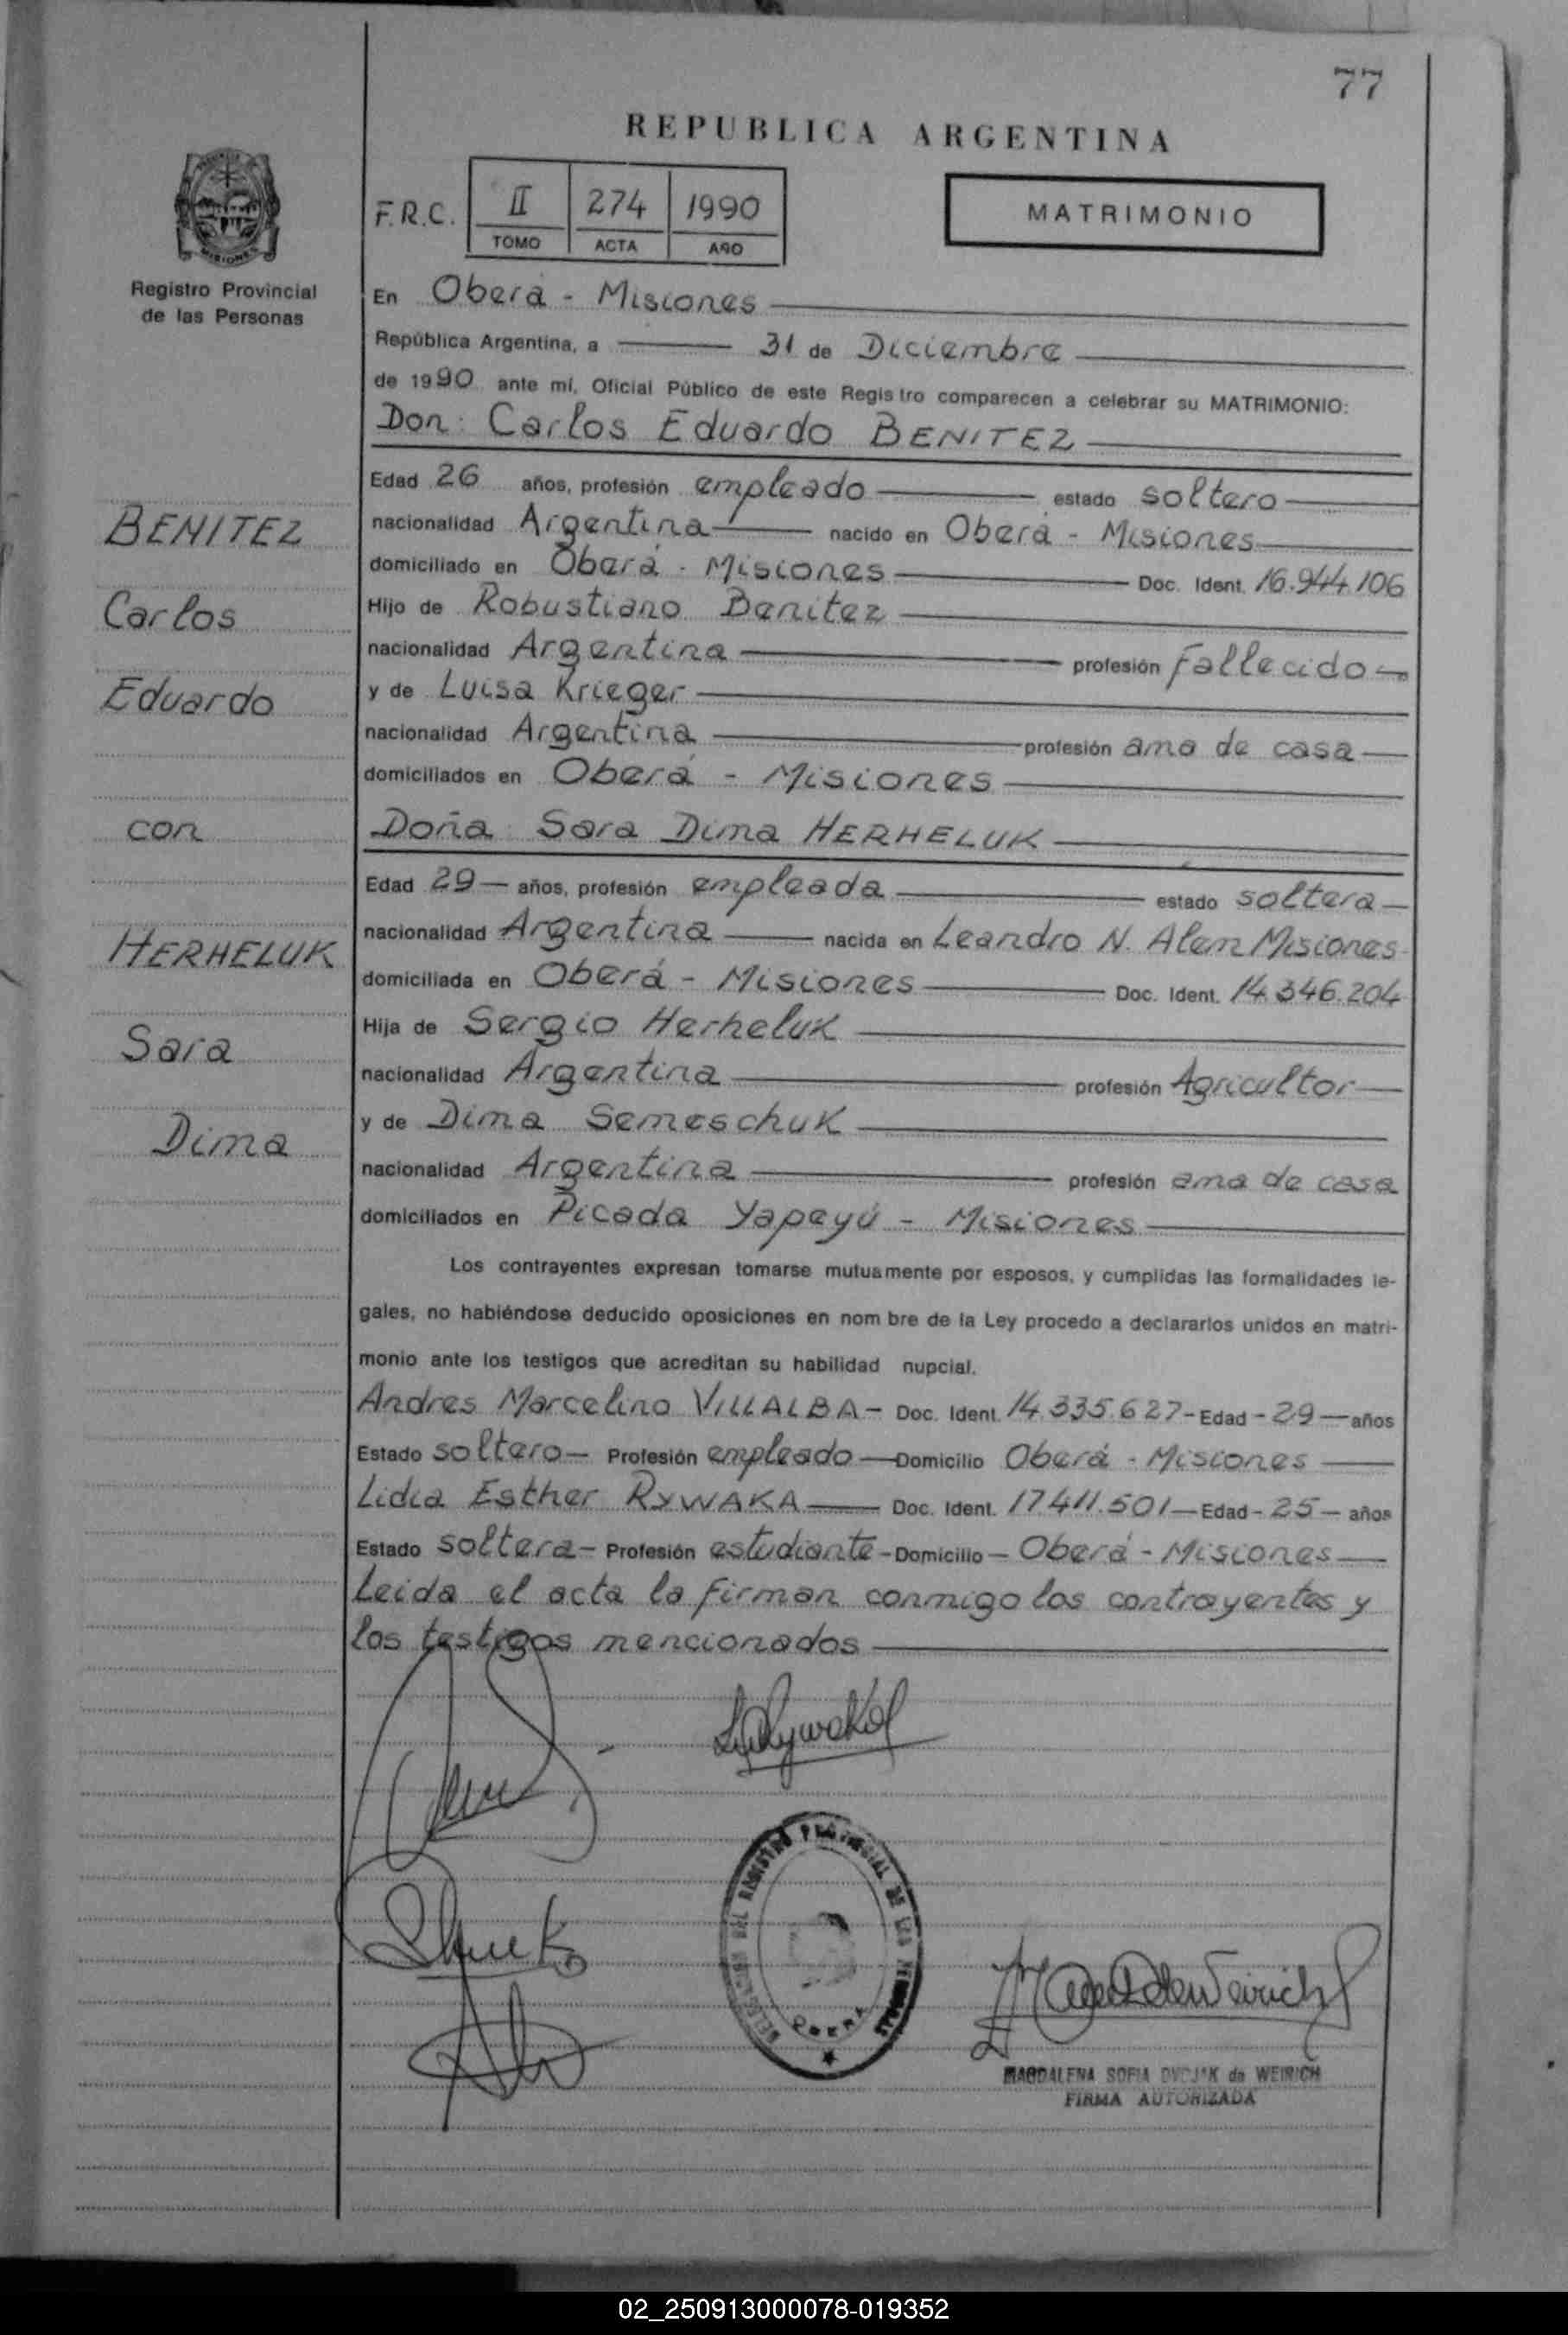 77
REPUBLICA ARGENTINA
F.R.C. II 274 1990
TOMO ACTA AÑO
MATRIMONIO
MISIONES
Registro Provincial
de las Personas
En Oberá - Misiones
República Argentina, a 31 de Diciembre
de 1990 ante mí, Oficial Público de este Registro comparecen a celebrar su MATRIMONIO:
Don: Carlos Eduardo BENITEZ
Edad 26 años, profesión empleado estado soltero
nacionalidad Argentina nacido en Oberá - Misiones
domiciliado en Oberá - Misiones Doc. Ident. 16.944.106
Hijo de Robustiano Benitez
nacionalidad Argentina profesión Fallecido
y de Luisa Krieger
nacionalidad Argentina profesión ama de casa
domiciliados en Oberá - Misiones
Doña: Sara Dima HERHELUK
Edad 29 años, profesión empleada estado soltera
nacionalidad Argentina nacida en Leandro N. Alem Misiones
domiciliada en Oberá - Misiones Doc. Ident. 14.346.204
Hija de Sergio Herheluk
nacionalidad Argentina profesión Agricultor
y de Dima Semeschuk
nacionalidad Argentina profesión ama de casa
domiciliados en Picada Yapeyú - Misiones
Los contrayentes expresan tomarse mutuamente por esposos, y cumplidas las formalidades le-
gales, no habiéndose deducido oposiciones en nom bre de la Ley procedo a declararlos unidos en matri-
monio ante los testigos que acreditan su habilidad nupcial.
Andres Marcelino VILLALBA - Doc. Ident. 14.335.627 - Edad - 29 - años
Estado soltero - Profesión empleado - Domicilio Oberá - Misiones
Lidia Esther RYWAKA Doc. Ident. 17.411.501 - Edad - 25 - años
Estado soltera - Profesión estudiante - Domicilio - Oberá - Misiones
Leida el acta la firman conmigo los contrayentes y
los testigos mencionados
BENITEZ
Carlos
Eduardo
con
HERHELUK
Sara
Dima
DEL REGISTRO PROVINCIAL DE LAS PERSONAS
OBERA
MAGDALENA SOFIA DVOJAK de WEIRICH
FIRMA AUTORIZADA
02_250913000078-019352